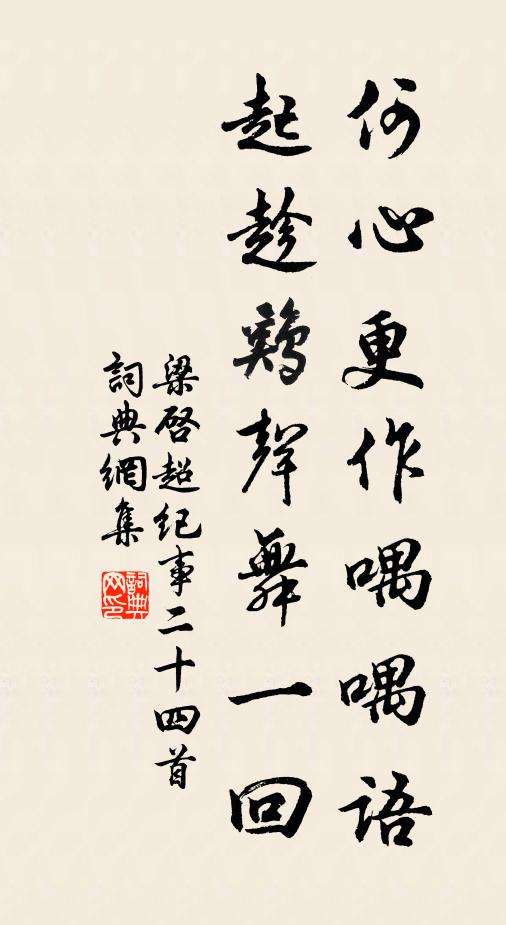 何心更作喁喁語
起趁鷄聲舞一回
梁啓超紀事二十四首
詞典網集
詞典网印